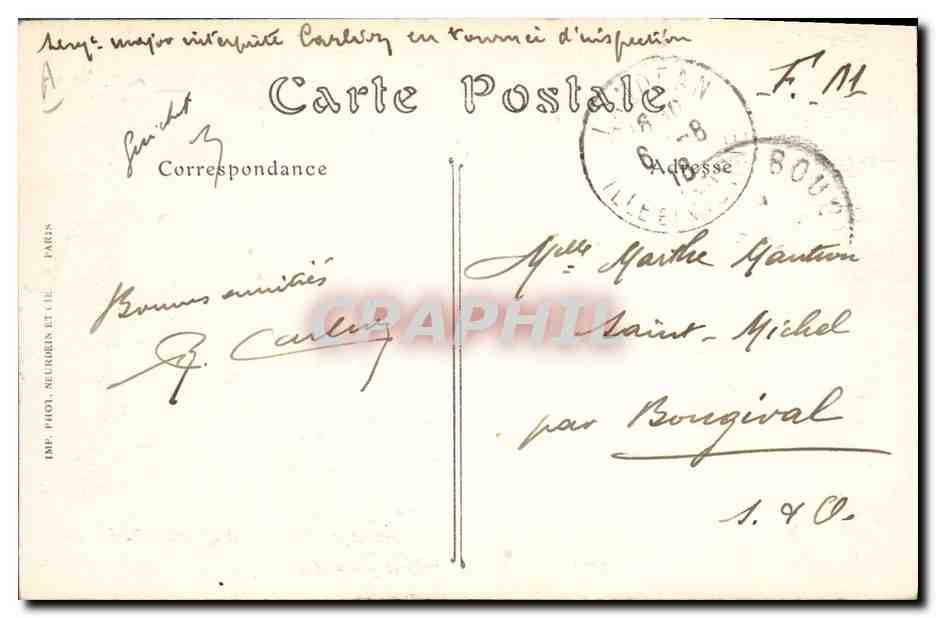 Sergt major interprète Carlier en tournée d'inspection
A
Carte Postale
F. M
Guichet
Correspondance
Adresse
6 -8
16
ILLE ET
BOUG
IMP. PHOT. NEURDEIN ET CIE PARIS
Bonnes amitiés
Mlle Marthe Mantion
Saint-Michel
par Bougival
S. & O.
CPAPHIL